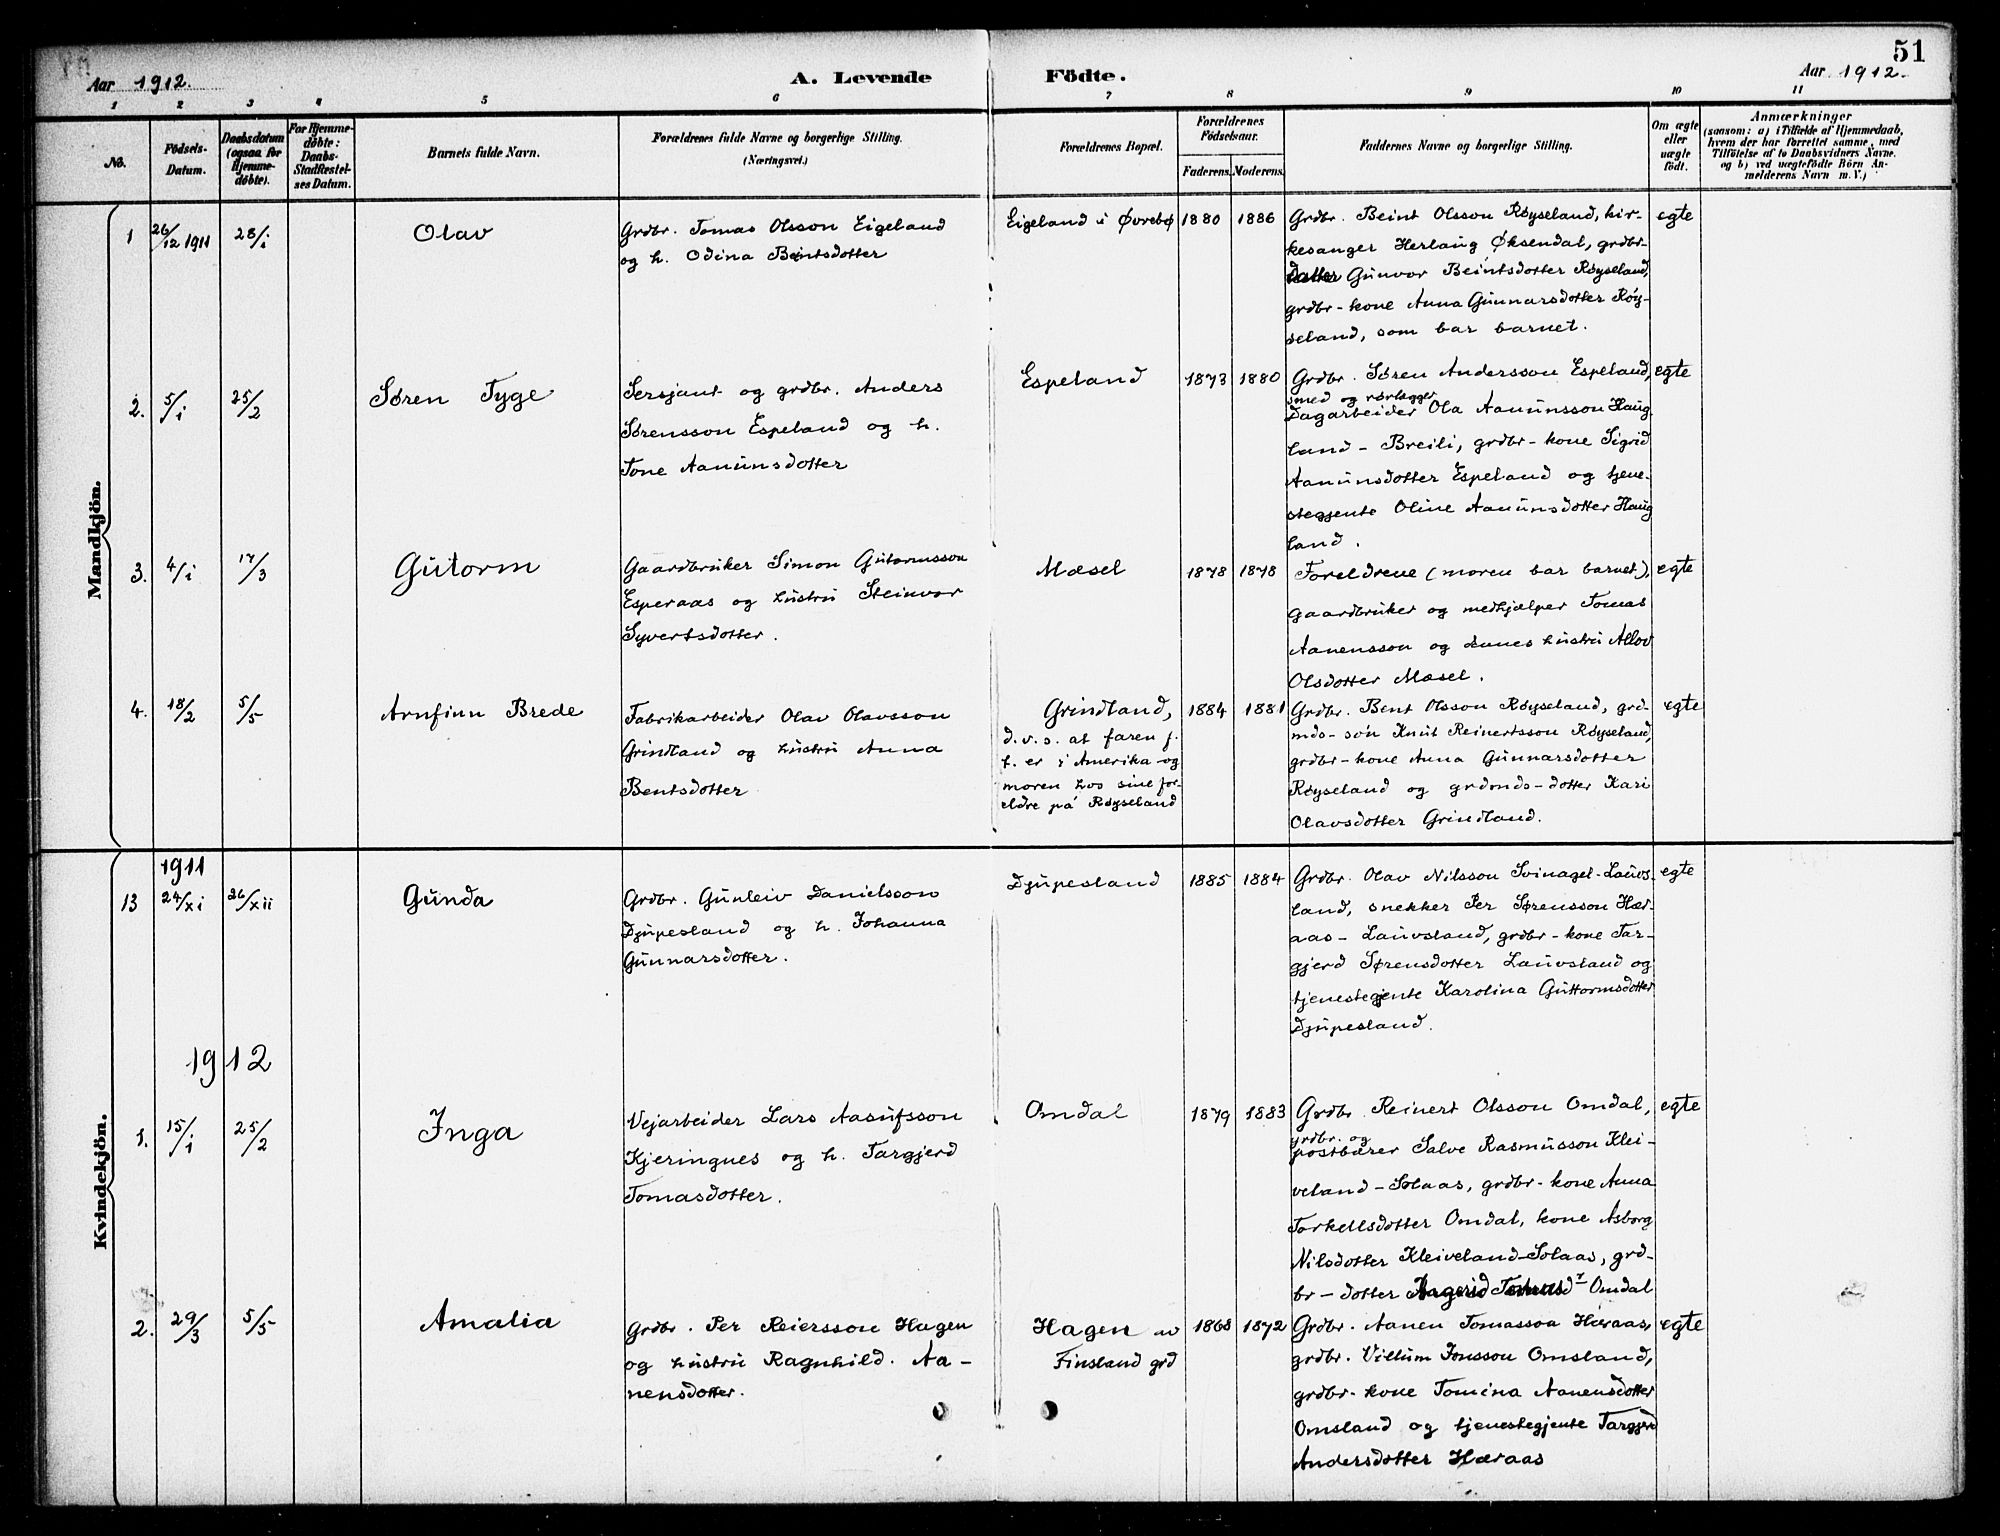 51
Aar 1912. A. Levende Födte. Aar 1912.
1 2 3 4 5 6 7 8 9 10 11
No.
Födsels-
Datum.
Daabsdatum
(ogsaa for
Hjemme-
döbte).
For Hjemme-
döbte:
Daabs-
Stadfæstel-
ses Datum.
Barnets fulde Navn.
Forældrenes fulde Navne og borgerlige Stilling.
(Næringsvei.)
Forældrenes Bopæl.
Forældrenes
Födselsaar.
Faderens. Moderens.
Faddernes Navne og borgerlige Stilling.
Om ægte
eller
uægte
födt.
Anmærkninger
(saasom: a) i Tilfælde af Hjemmedaab,
hvem der har forrettet samme, med
Tilföielse af to Daabsvidners Navne,
og b) ved uægtefödte Börn An-
melderens Navn m. V.)
Mandkjön.
1 26/12 1911 28/i Olav
Grdbr. Tomas Olsson Eigeland
og h. Odina Beintsdotter
Eigeland i Øvrebø 1880 1886
Grdbr. Beint Olsson Røyseland, kir-
kesanger Herlaug Øksendal, grdbr-
datter Gunvor Beintsdotter Røyseland,
grdbr-kone Anna Gunnarsdotter Røy-
seland, som bar barnet.
egte
2. 5/i 25/2 Søren Tyge
Sersjant og grdbr. Anders
Sørensson Espeland og h.
Tone Aanunsdotter
Espeland 1873 1880
Grdbr. Søren Andersson Espeland,
smed og rørlægger
Dagarbeider Ola Aanunsson Haug-
land - Breili, grdbr-kone Sigrid
Aanunsdotter Espeland og tjene-
stegjente Oline Aanunsdotter Haug
land.
egte
3. 4/i 17/3 Gutorm
Gaardbruker Simon Gutormsson
Esperaas og hustru Steinvor
Syvertsdotter.
Mæsel 1878 1878
Foreldrene (moren bar barnet),
gaardbruker og medhjælper Tomas
Aanensson og dennes hustru Allov
Olsdotter Mæsel.
egte
4. 18/2 5/5 Arnfinn Brede
Fabrikarbeider Olav Olavsson
Grindland og hustru Anna
Bentsdotter
Grindland,
d.v.s. at faren f.
t. er i Amerika og
moren hos sine for-
eldre på Røyseland
1884 1881
Grdbr. Bent Olsson Røyseland, grd-
mds-søn Knut Reinertsson Røyseland,
grdbr-kone Anna Gunnarsdotter
Røyseland og grdmds-dotter Kari
Olavsdotter Grindland.
egte
Kvindekjön.
1911
13 24/xi 26/xii Gunda
Grdbr. Gunleiv Danielsson
Djupesland og h. Johanna
Gunnarsdotter.
Djupesland 1885 1884
Grdbr. Olav Nilsson Svinagel-Lauvs-
land, snekker Per Sørensson Hær-
aas - Lauvsland, grdbr-kone Tar-
gjerd Sørensdotter Lauvsland og
tjenestegjente Karolina Guttormsdotter
Djupesland.
egte
1912
1. 15/i 25/2 Inga
Vejarbeider Lars Aasufsson
Kjeringnes og h. Targjerd
Tomasdotter.
Omdal 1879 1883
Grdbr. Reinert Olsson Omdal,
grdbr. og
postbærer Salve Rasmusson Klei-
veland - Solaas, grdbr-kone Anna
Torkellsdotter Omdal, kone Asborg
Nilsdotter Kleiveland-Solaas, grd-
br-dotter Omdal
egte
2. 29/3 5/5 Amalia
Grdbr. Per Reiersson Hagen
og hustru Ragnhild. Aa-
nensdotter.
Hagen av
Finsland grd
1868 1872
Grdbr. Aanen Tomasson Hæraas,
grdbr. Villum Jonsson Omsland,
grdbr-kone Tomina Aanensdotter
Omsland og tjenestegjente Targjerd
Andersdotter Hæraas
egte